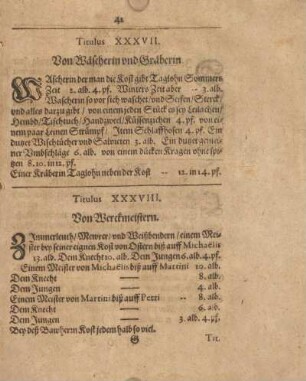 42
Titulus XXXVII.
Von Wäscherin vnd Gräberin
WAscherin der man die Kost gibt Taglohn Sommers
Zeit 2. alb. 4. pf. Winters Zeit aber -- 3. alb.
Wascherin so vor sich waschet/ vnd Seifen/ Sterck/
vnd alles darzu gibt/ von einem jeden Stück
Hembd/ Tischtuch/ Handzwel/ Küssenziehen 4. pf. von ei-
nem paar leinen Strümpf/ Item Schlaffhosen 4. pf. Ein
dutzet Wischtücher vnd Salveten 3. alb. Ein dutzet
Vmbschläge 6. alb. von einem dicken Kragen ohne spitzen
8. 10. in 12. pf.
Einer Kräberin Taglohn neben der Kost -- 12. in 14. pf.
Titulus XXXVIII.
Von Werckmeistern.
ZImmerleuth/ Meurer/ vnd Weißbendern/ einem Mei-
ster bey seiner eignen Kost von Ostern biß auff Michaelis
13. alb. Dem Knecht 10. alb. Dem Jungen 6. alb. 4. pf.
Einem Meister von Michaelis biß auff Martini 10. alb.
Dem Knecht — 8. alb.
Dem Jungen — 4. alb.
Einem Meister von Martini biß auff Petri -- 8. alb.
Dem Knecht — 6. alb.
Dem Jungen — 3. alb. 4. pf.
Bey deß Bawherrn Kost jedem halb so viel.
G Tit.